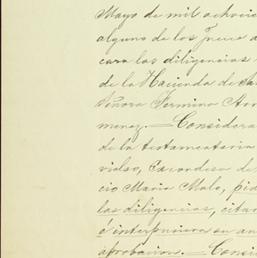 Mayo de mil ochoci
alguno de los
cara las diligencias
de la Hacienda de
Señora Fermina
menez.—Considera
de la testamentaria
vides,
cio Maria Malo, pid
las diligencias, citar
é interpusiera su an
aprobacion.—Consi